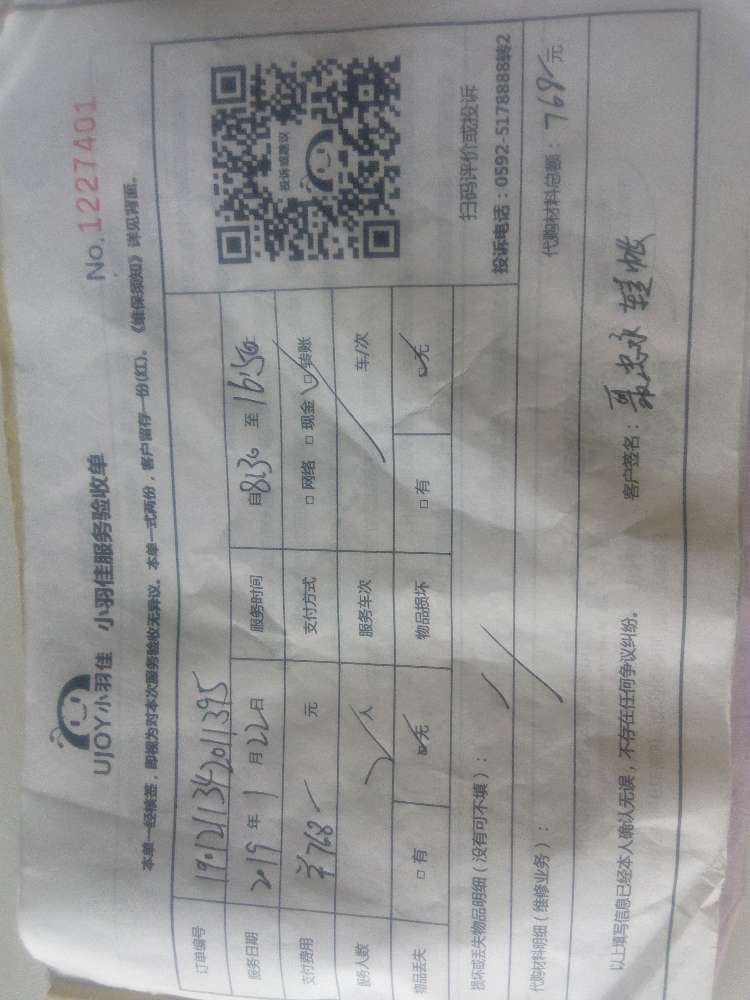 UJOY小羽佳 小羽佳服务验收单
No.1227401
本单一经核签，即视为对本次服务验收无异议。本单一式两份，客户留存一份(红)。《维保须知》详见背面。
订单编号 1901211342011395
服务日期 2019年1月22日 服务时间 自8:30至16:50
支付费用 ￥768元 支付方式 □网络 □现金 □转账
服务人数 人 服务车次 车/次
物品丢失 □有 □无 物品损坏 □有 □无
投诉或建议
扫码评价或投诉
投诉电话：0592-5178888转2
损坏或丢失物品明细（没有可不填）：
代购材料明细（维修业务）： 代购材料总额：768元
以上填写信息已经本人确认无误，不存在任何争议纠纷。 客户签名：